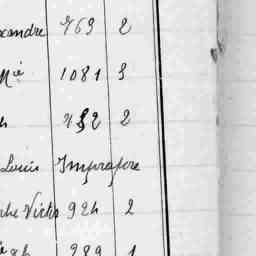 xandre 769 2
Mie 1081 3
h 782 2
Louis Impropre
che Victor 924 2
289 1